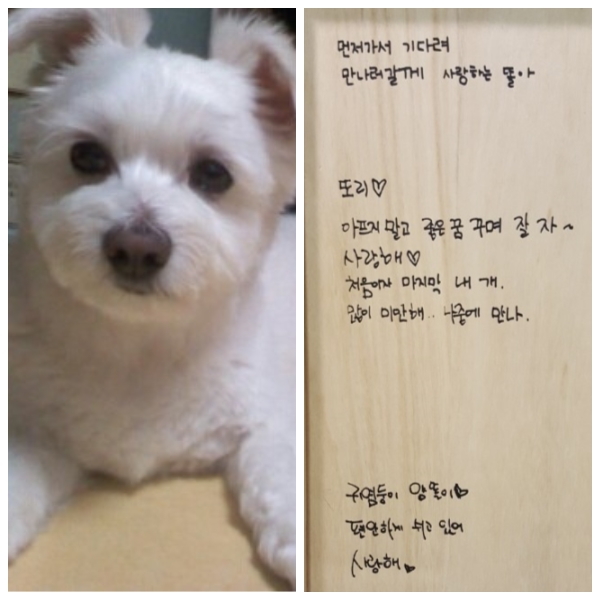 먼저가서 기다려
만나러갈께 사랑하는 똘아
또리♡
아프지 말고 좋은 꿈 꾸며 잘 자~
사랑해♡
처음이자 마지막 내 개.
많이 미안해.. 나중에 만나.
귀염둥이 앙똘이♥
편안하게 쉬고 있어
사랑해♥